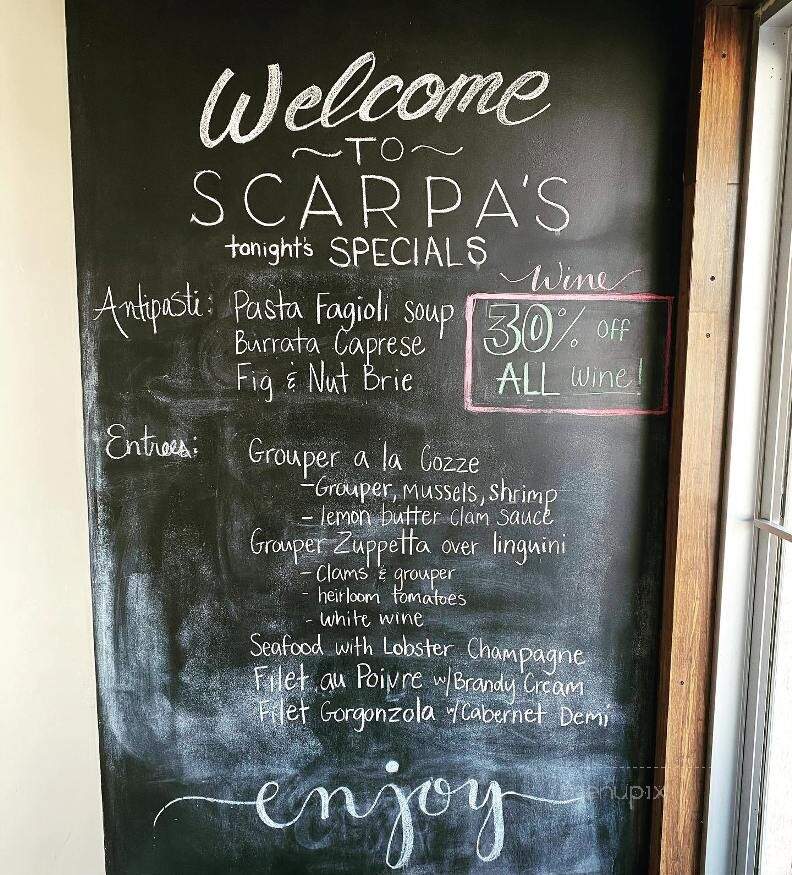 Welcome
~TO~
SCARPA'S
tonight's SPECIALS
Wine
30% off
ALL wine!
Antipasti: Pasta Fagioli soup
Burrata Caprese
Fig & Nut Brie
Entrees: Grouper a la Cozze
- Grouper, mussels, shrimp
- lemon butter clam sauce
Grouper Zuppetta over linguini
- Clams & grouper
- heirloom tomatoes
- white wine
Seafood with Lobster Champagne
Filet au Poivre w/Brandy Cream
Filet Gorgonzola w/Cabernet Demi
enjoy
menupix